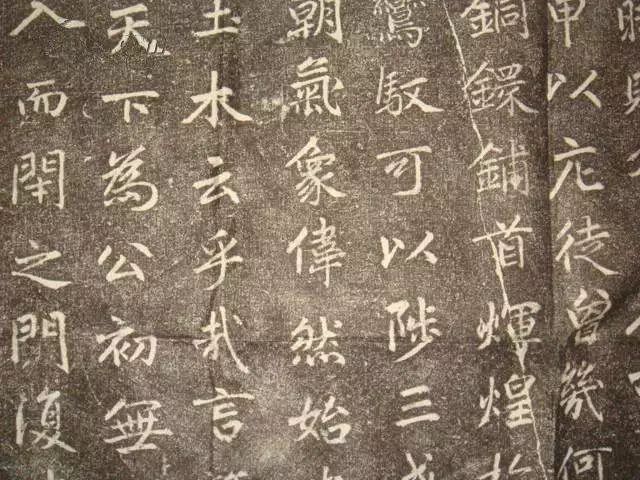 甲以庀徒曾幾何
銅鐶鋪首輝煌於
鸞馭可以陟三成
朝氣象偉然始
土木云乎哉言
天下為公初無
入而閇之門復